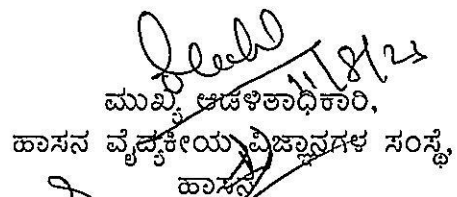 11/8/23
ಮುಖ್ಯ ಆಡಳಿತಾಧಿಕಾರಿ,
ಹಾಸನ ವೈದ್ಯಕೀಯ ವಿಜ್ಞಾನಗಳ ಸಂಸ್ಥೆ,
ಹಾಸನ